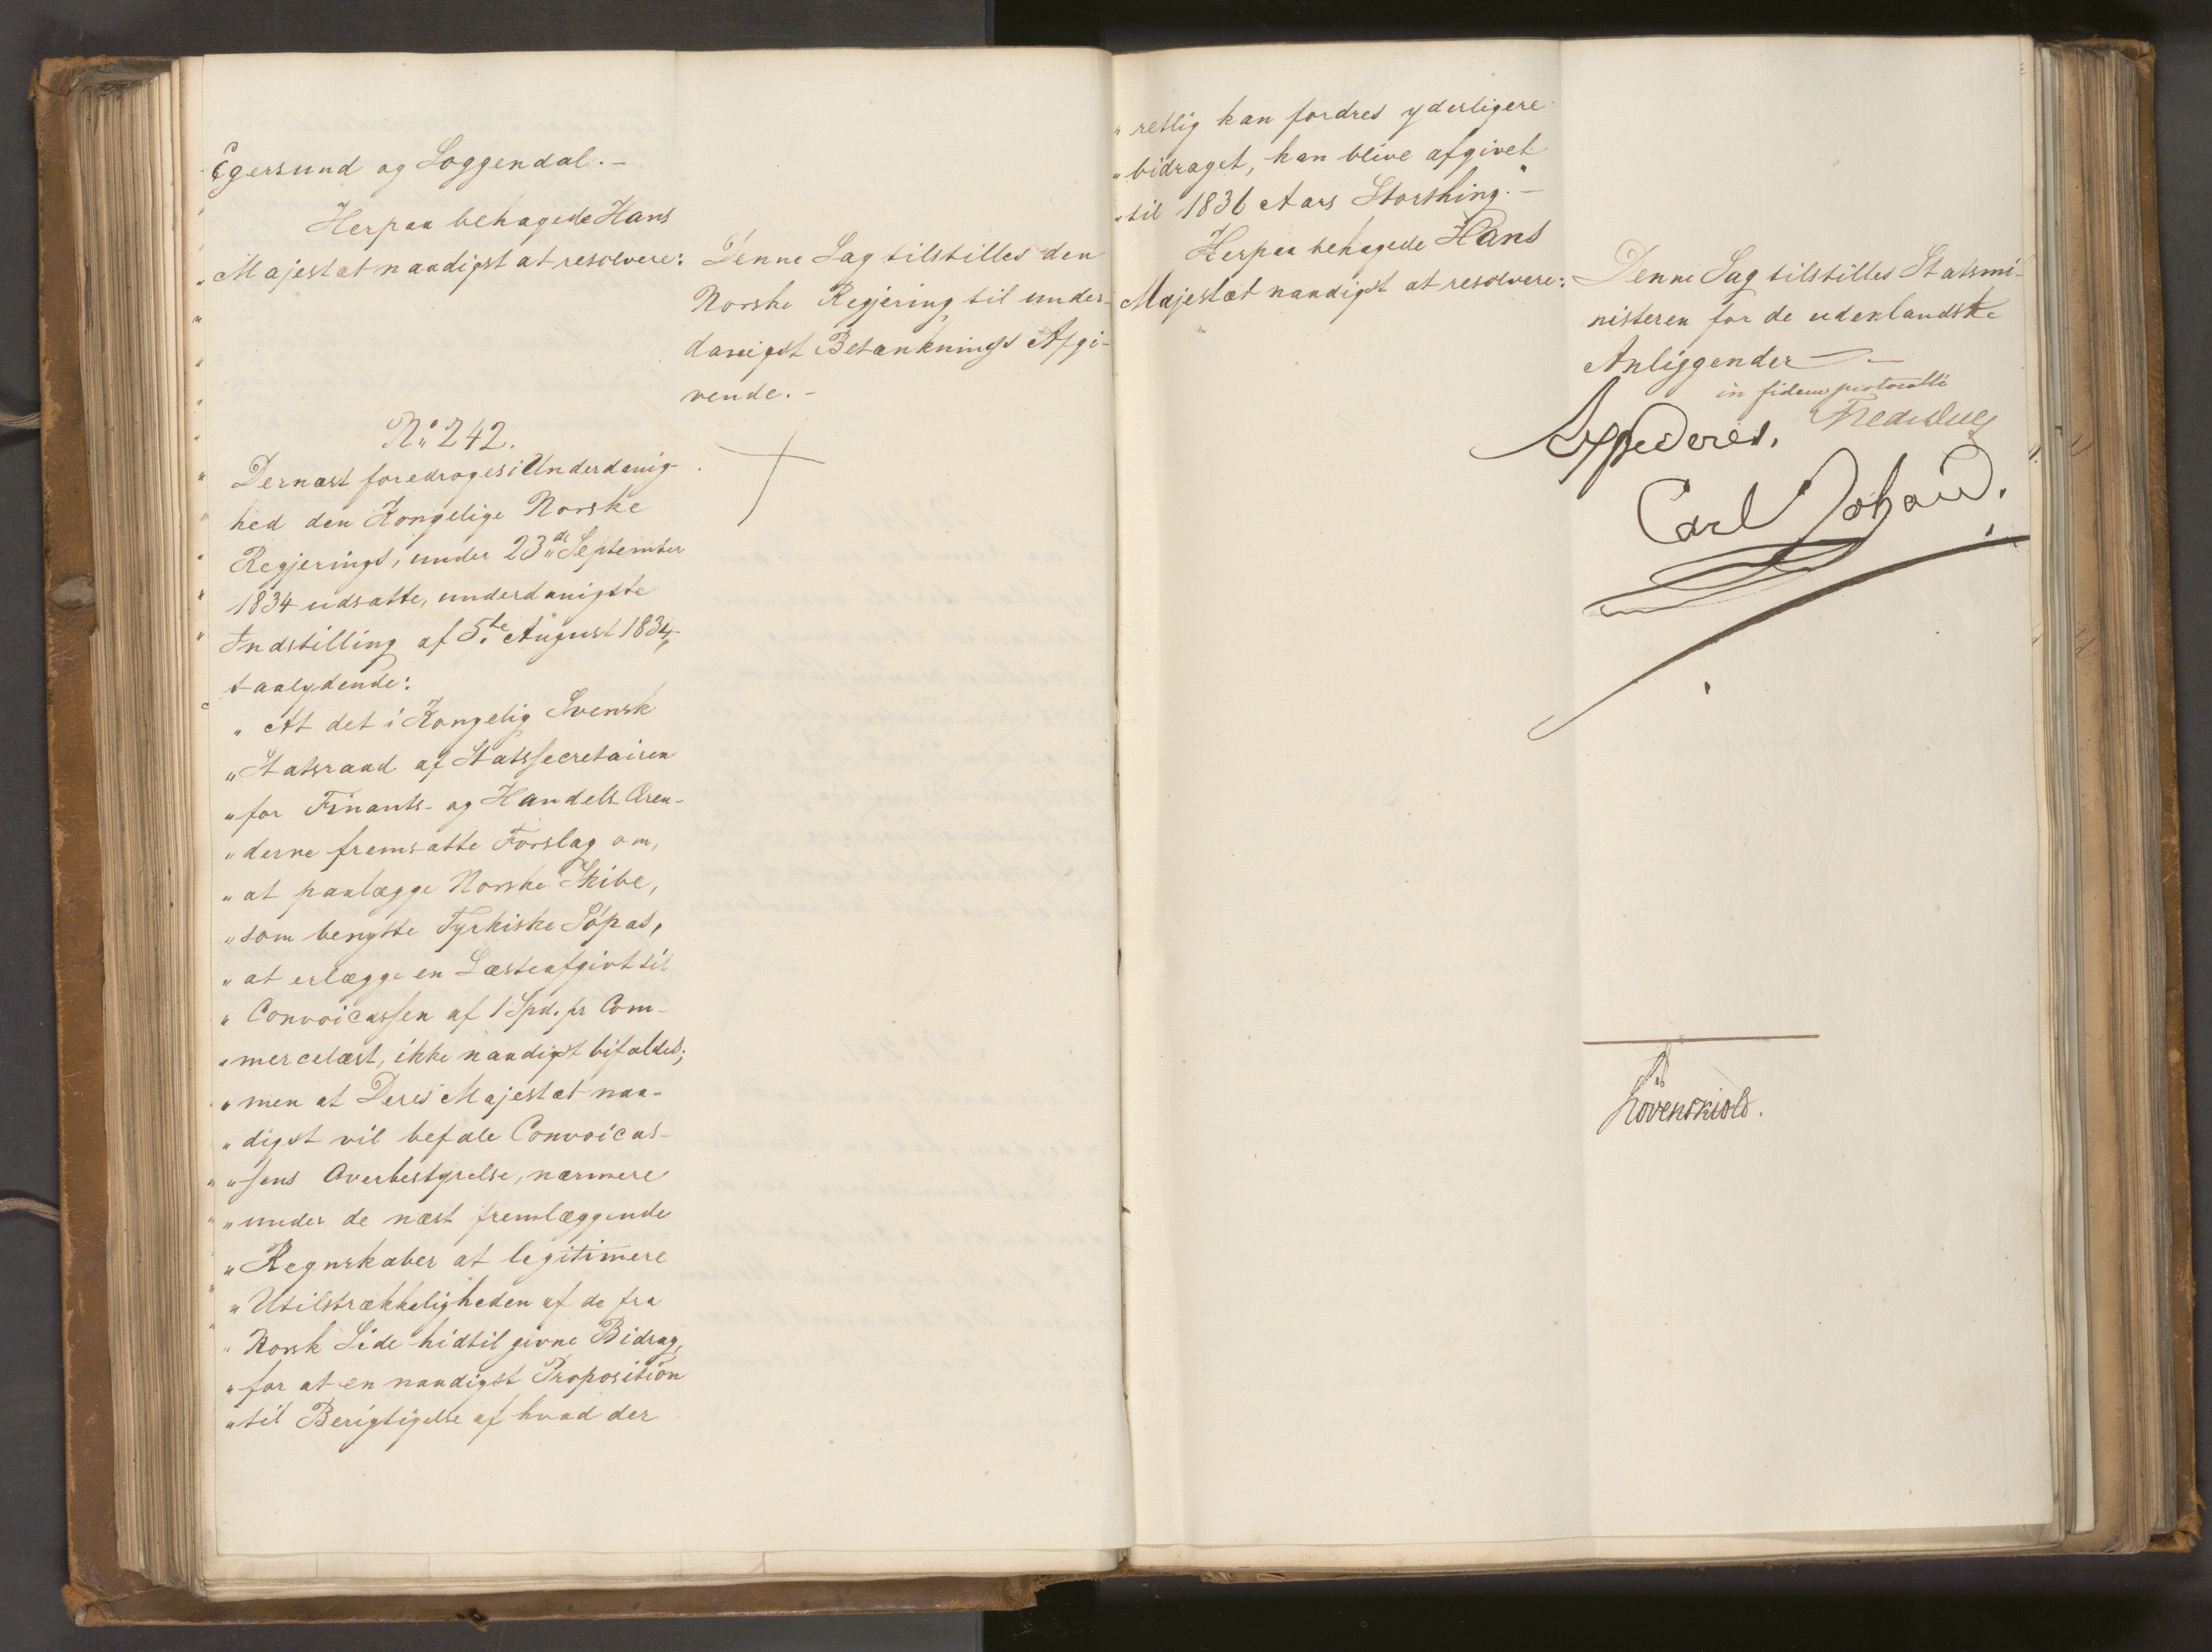 Egersund og Soggendal. -
Herpaa behagede Hans
Majestæt naadigst at resolvere:
Denne Sag tilstilles den
Norske Regjering til under-
danigst Betænknings Afgi-
vende. -
No 242.
Dernæst foredroges i Underdanig-
hed den Kongelige Norske
Regjerings, under 23de September
1834 udsatte, underdanigste
Indstilling af 5te August 1834,
saalydende:
„ At det i Kongelig Svensk
„ Statsraad af Statssecretairen
„ for Finants- og Handels Æren-
„ derne fremsatte Forslag om,
„ at paalægge Norske Skibe,
„ som benytte Tyrkiske Søpas,
„ at erlægge en Læsteafgivt til
„ Convoicassen af 1 Spd. pr Com-
„ mercelæst, ikke naadigst bifaldes;
„ men at Deres Majestæt naa-
„ digst vil befale Convoicas-
„ sens Overbestyrelse, nærmere
„ under de næst fremlæggende
„ Regnskaber at legitimere
„ Utilstrækkeligheden af de fra
„ Norsk Side hidtil givne Bidrag,
„ for at en naadigst Proposition
„ til Berigtigelse af hvad der
„ retlig kan fordres yderligere
„ bidraget, kan blive afgivet
„ til 1836 Aars Storthing." -
Herpaa behagede Hans
Majestæt naadigst at resolvere:
Denne Sag tilstilles Statsmi-
nisteren for de udenlandske
Anliggender -
in fidem protocolli
Expederes.
Carl Johan.
Løvenskiold.